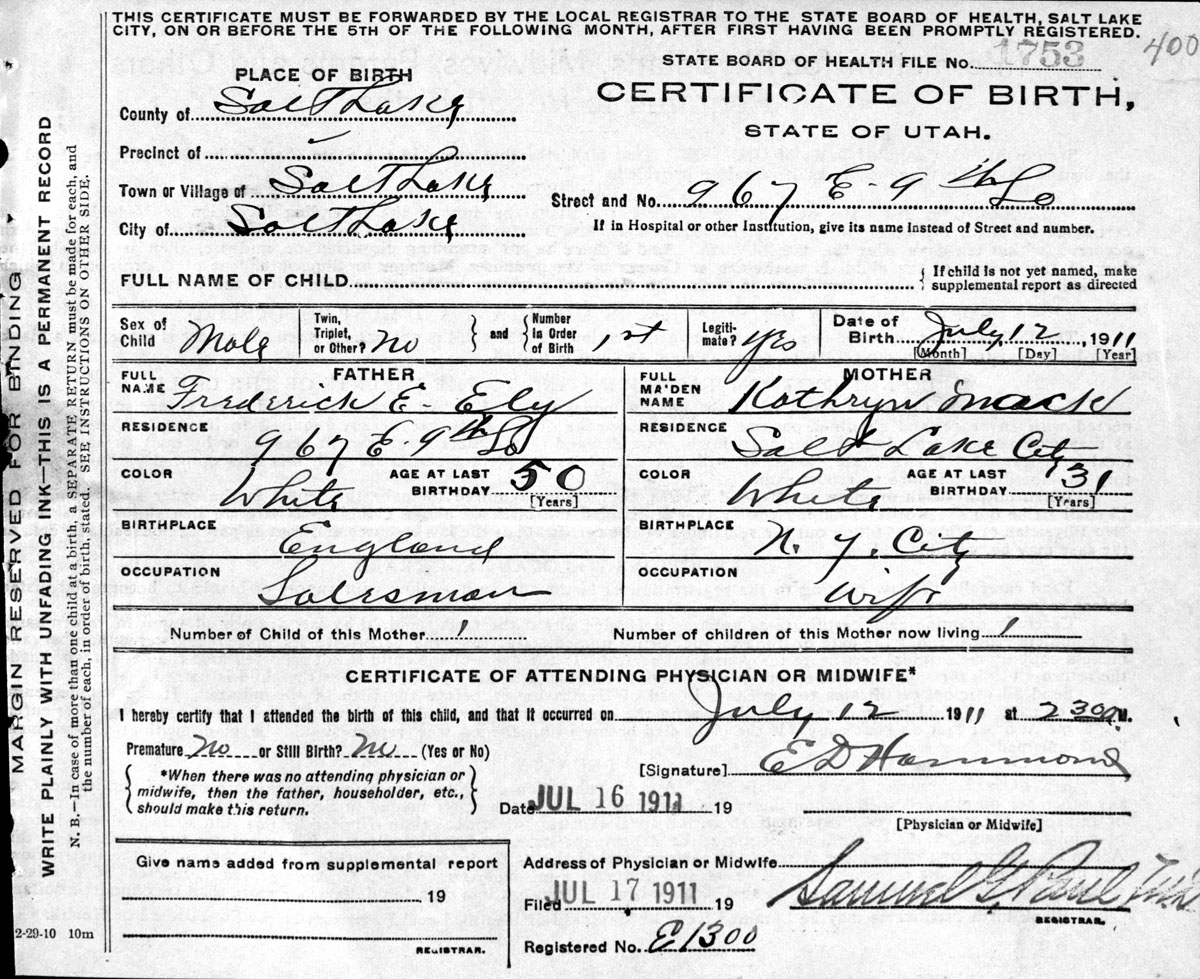 THIS CERTIFICATE MUST BE FORWARDED BY THE LOCAL REGISTRAR TO THE STATE BOARD OF HEALTH, SALT LAKE
CITY, ON OR BEFORE THE 5TH OF THE FOLLOWING MONTH, AFTER FIRST HAVING BEEN PROMPTLY REGISTERED.
400
STATE BOARD OF HEALTH FILE No. 1753
CERTIFICATE OF BIRTH,
STATE OF UTAH.
PLACE OF BIRTH
County of Salt Lake
Precinct of
Town or Village of Salt Lake
City of Salt Lake
Street and No. 967 E-9th So
If in Hospital or other Institution, give its name instead of Street and number.
FULL NAME OF CHILD
If child is not yet named, make
supplemental report as directed
Sex of
Child Male
Twin,
Triplet,
or Other? No
and
Number
in Order
of Birth 1st
Legiti-
mate? Yes
Date of
Birth July 12, 1911
[Month] [Day] [Year]
FATHER
FULL
NAME Frederick E- Ely
RESIDENCE
967 E-9th So
COLOR White
AGE AT LAST
BIRTHDAY 50
[Years]
BIRTHPLACE
England
OCCUPATION
Salesman
MOTHER
FULL
MAIDEN
NAME Kathryn Mack
RESIDENCE
Salt Lake City
COLOR White
AGE AT LAST
BIRTHDAY 31
[Years]
BIRTHPLACE
N. Y. City
OCCUPATION
Wife
Number of Child of this Mother 1
Number of children of this Mother now living 1
CERTIFICATE OF ATTENDING PHYSICIAN OR MIDWIFE*
I hereby certify that I attended the birth of this child, and that it occurred on July 12 1911 at 2 30 M.
Premature No or Still Birth? No (Yes or No)
*When there was no attending physician or
midwife, then the father, householder, etc.,
should make this return.
[Signature] E D Hammond
Date JUL 16 1911, 19
[Physician or Midwife]
Give name added from supplemental report
19
REGISTRAR.
Address of Physician or Midwife
Filed JUL 17 1911 19
Samuel G. Paul
REGISTRAR.
Registered No. E1300
2-29-10 10m
MARGIN RESERVED FOR BINDING
WRITE PLAINLY WITH UNFADING INK—THIS IS A PERMANENT RECORD
N. B.—In case of more than one child at a birth, a SEPARATE RETURN must be made for each, and
the number of each, in order of birth, stated. SEE INSTRUCTIONS ON OTHER SIDE.